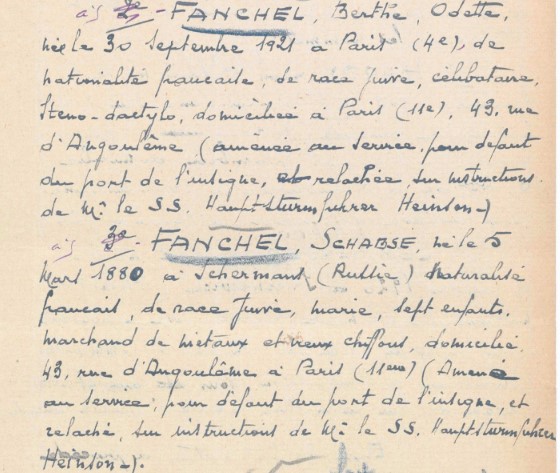 2e - FANCHEL, Berthe, Odette,
née le 30 septembre 1921 à Paris (4e), de
nationalité française, de race juive, célibataire,
steno-dactylo, domiciliée à Paris (11e), 43, rue
d'Angoulême (amenée au service, pour défaut
du port de l'insigne, et relachée, sur instructions
de Mr le SS. Hauptsturmfuhrer Heinson-)
3e - FANCHEL, SCHABSE, né le 5
Mars 1880 à Schermans (Russie) Naturalisé
français, de race Juive, marié, sept enfants,
marchand de métaux et vieux chiffons, domicilié
43, rue d'Angoulême à Paris (11eme) (Amené
au service, pour défaut du port de l'insigne, et
relaché, sur instructions de Mr le SS. Hauptsturmfuhrer
Heinson-).